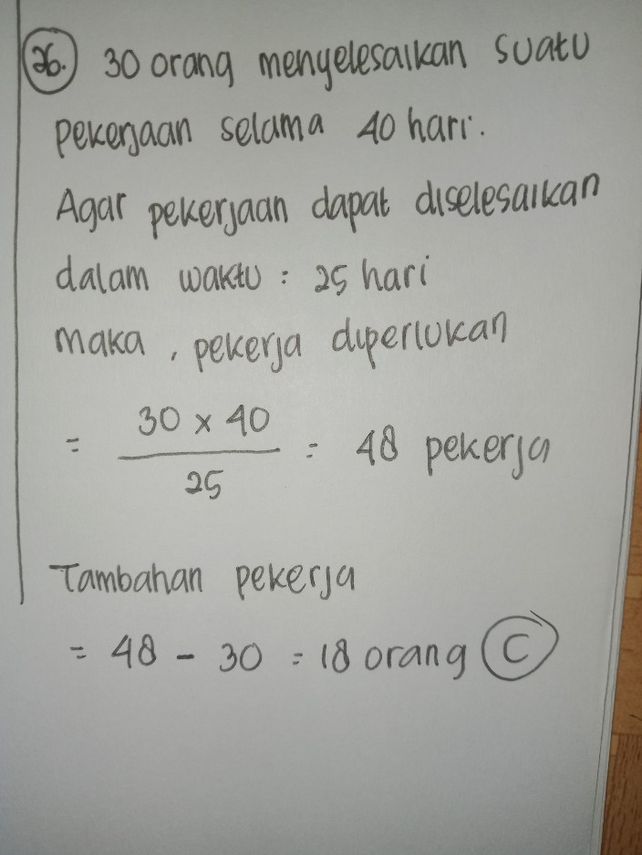 26. 30 orang menyelesaikan suatu
pekerjaan selama 40 hari.
Agar pekerjaan dapat diselesaikan
dalam waktu : 25 hari
maka, pekerja diperlukan
= 30 x 40 / 25 = 48 pekerja
Tambahan pekerja
= 48 - 30 = 18 orang C